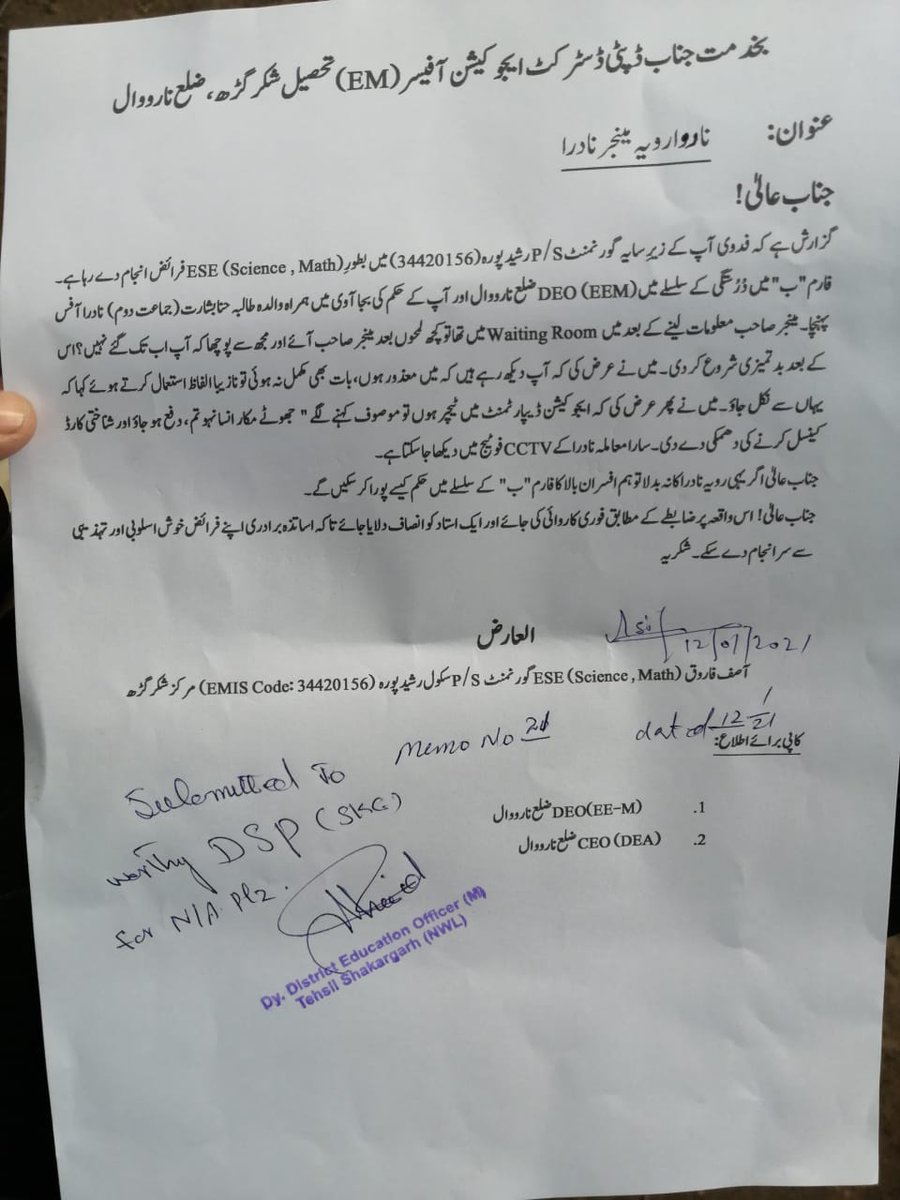 بخدمت جناب ڈپٹی ڈسٹرکٹ ایجوکیشن آفیسر (EM) تحصیل شکرگڑھ، ضلع نارووال
عنوان: ناروا رویہ مینجر نادرا
جناب عالیٰ!
گزارش ہے کہ فدوی آپ کے زیرِ سایہ گورنمنٹ P/S رشید پورہ (34420156) میں بطور ESE (Science , Math) فرائض انجام دے رہا ہے۔
فارم "ب" میں دُرستگی کے سلسلے میں DEO (EEM) ضلع نارووال اور آپ کے حکم کی بجا آوری میں ہمراہ والدہ طالبہ حنا بشارت (جماعت دوم) نادرا آفس
پہنچا۔ مینجر صاحب معلومات لینے کے بعد میں Waiting Room میں تھا تو کچھ لمحوں بعد مینجر صاحب آئے اور مجھ سے پوچھا کہ آپ اب تک گئے نہیں؟ اس
کے بعد بدتمیزی شروع کر دی۔ میں نے عرض کی کہ آپ دیکھ رہے ہیں کہ میں معذور ہوں، بات بھی مکمل نہ ہوئی تو نازیبا الفاظ استعمال کرتے ہوئے کہا کہ
یہاں سے نکل جاؤ۔ میں نے پھر عرض کی کہ ایجوکیشن ڈیپارٹمنٹ میں ٹیچر ہوں تو موصوف کہنے لگے " جھوٹے مکار انسانہو تم، دفع ہو جاؤ اور شناختی کارڈ
کینسل کرنے کی دھمکی دے دی۔ سارا معاملہ نادرا کے CCTV فوٹیج میں دیکھا جا سکتا ہے۔
جناب عالیٰ اگر یہی رویہ نادرا کا نہ بدلا تو ہم افسران بالا کا فارم "ب" کے سلسلے میں حکم کیسے پورا کر سکیں گے۔
جناب عالیٰ! اس واقعہ پر ضابطے کے مطابق فوری کاروائی کی جائے اور ایک استاد کو انصاف دلایا جائے تاکہ اساتذہ برادری اپنے فرائض خوش اسلوبی اور تہذیبی
سے سرانجام دے سکے۔ شکریہ
العارض
Asif
12/01/2021
آصف فاروق ESE (Science , Math) گورنمنٹ P/S سکول رشید پورہ (EMIS Code: 34420156) مرکز شکرگڑھ
Memo No 21 dated 12/1/21
کاپی برائے اطلاع:
1. DEO(EE-M) ضلع نارووال
2. CEO (DEA) ضلع نارووال
Submitted To
worthy DSP (SKG)
for N/A Plz.
Dy. District Education Officer (M)
Tehsil Shakargarh (NWL)